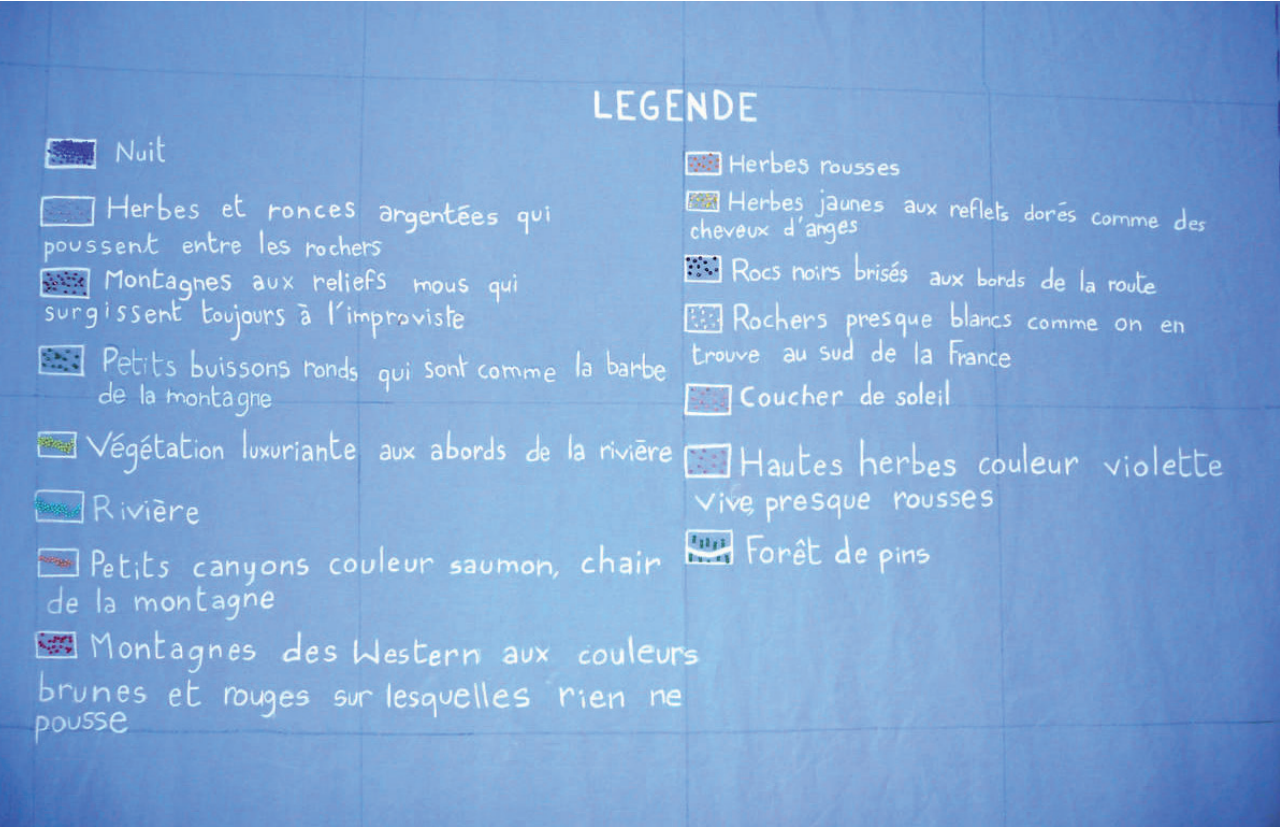 LEGENDE
Nuit
Herbes et ronces argentées qui
poussent entre les rochers
Montagnes aux reliefs mous qui
surgissent toujours à l'improviste
Petits buissons ronds qui sont comme la barbe
de la montagne
Végétation luxuriante aux abords de la rivière
Rivière
Petits canyons couleur saumon, chair
de la montagne
Montagnes des Western aux couleurs
brunes et rouges sur lesquelles rien ne
pousse
Herbes rousses
Herbes jaunes aux reflets dorés comme des
cheveux d'anges
Rocs noirs brisés aux bords de la route
Rochers presque blancs comme on en
trouve au sud de la France
Coucher de soleil
Hautes herbes couleur violette
vive, presque rousses
Forêt de pins